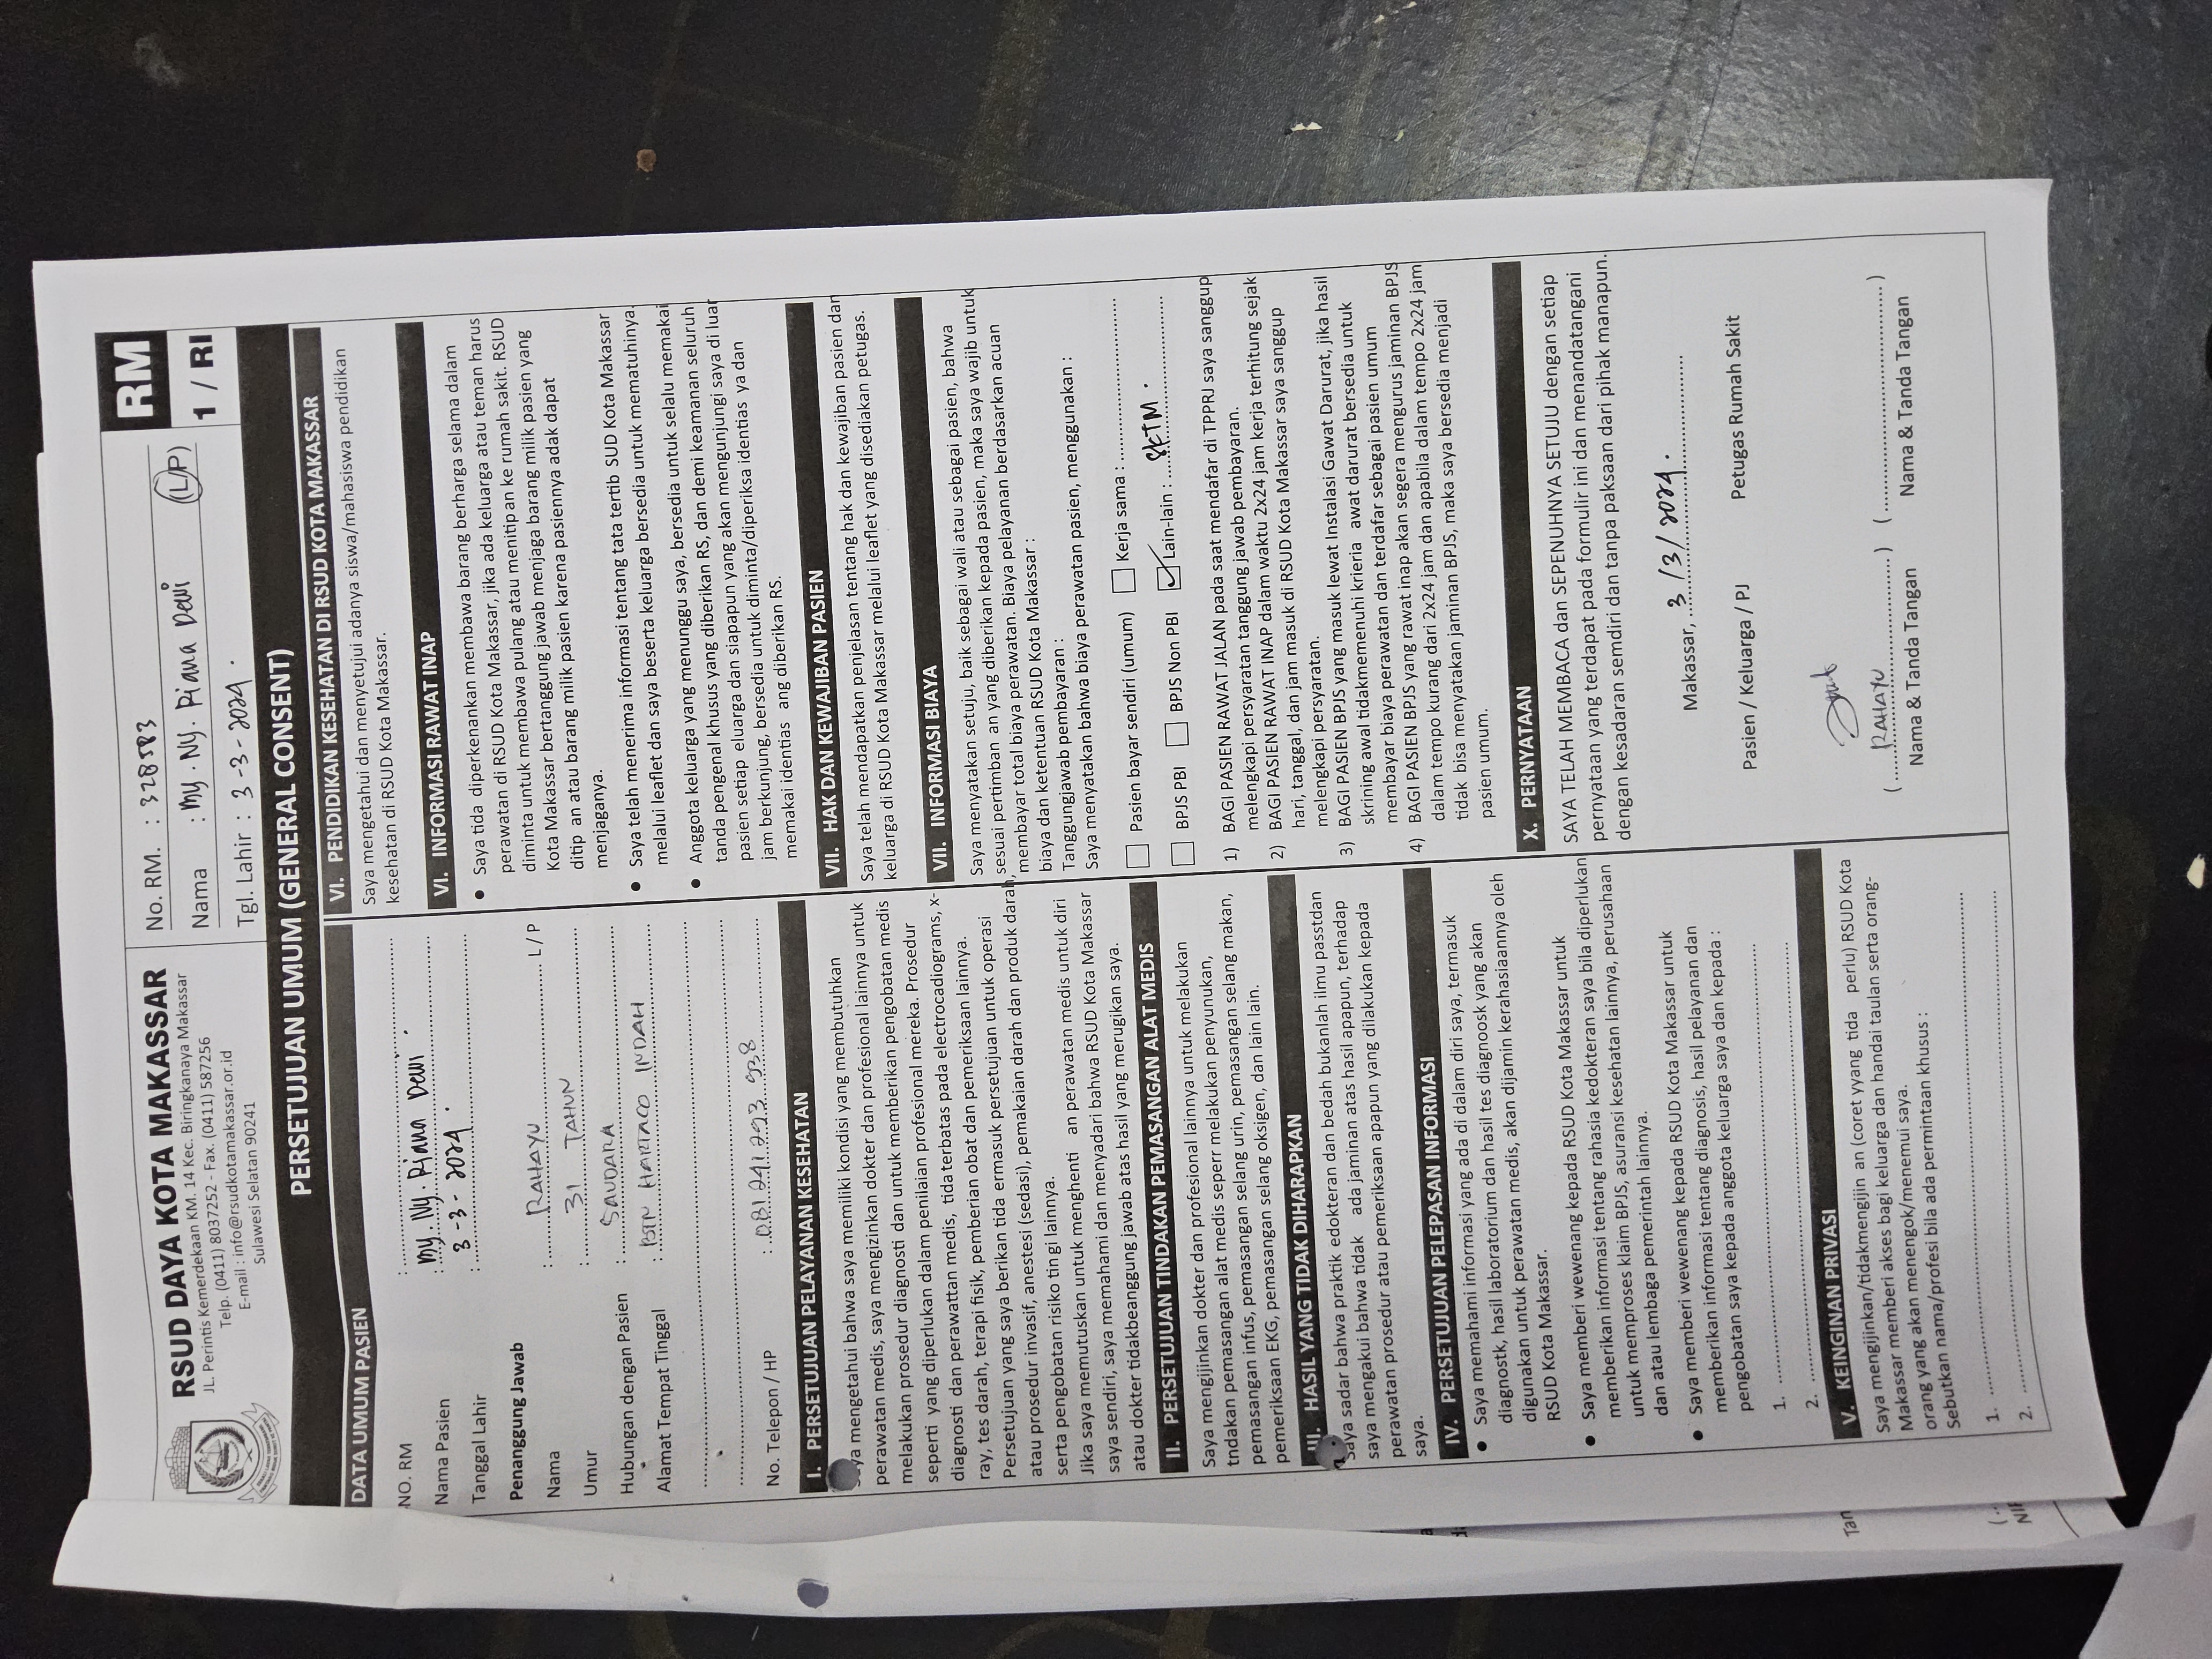 RSUD DAYA KOTA MAKASSAR
JL. Perintis Kemerdekaan KM. 14 Kec. Biringkanaya Makassar
Telp. (0411) 8037252 - Fax. (0411) 587256
E-mail : info@rsudkotamakassar.or.id
Sulawesi Selatan 90241
No. RM. : 328583
Nama : My. Ny. Riana Dewi (L/P)
Tgl. Lahir : 3-3-2024.
RM
1 / RI
PERSETUJUAN UMUM (GENERAL CONSENT)
DATA UMUM PASIEN
NO. RM :
Nama Pasien : My. Ny. Riana Dewi.
Tanggal Lahir : 3-3-2024.
Penanggung Jawab
Nama : RAHAYU L / P
Umur : 31 TAHUN
Hubungan dengan Pasien : SAUDARA
Alamat Tempat Tinggal : BTN HARTACO INDAH
No. Telepon / HP :
I. PERSETUJUAN PELAYANAN KESEHATAN
Saya mengetahui bahwa saya memiliki kondisi yang membutuhkan
perawatan medis, saya mengizinkan dokter dan profesional lainnya untuk
melakukan prosedur diagnosti dan untuk memberikan pengobatan medis
seperti yang diperlukan dalam penilaian profesional mereka. Prosedur
diagnosti dan perawattan medis, tida terbatas pada electrocadiograms, x-
ray, tes darah, terapi fisik, pemberian obat dan pemeriksaan lainnya.
Persetujuan yang saya berikan tida ermasuk persetujuan untuk operasi
atau prosedur invasif, anestesi (sedasi), pemakaian darah dan produk darah,
serta pengobatan risiko tin gi lainnya.
Jika saya memutuskan untuk menghenti an perawatan medis untuk diri
saya sendiri, saya memahami dan menyadari bahwa RSUD Kota Makassar
atau dokter tidakbeanggung jawab atas hasil yang merugikan saya.
II. PERSETUJUAN TINDAKAN PEMASANGAN ALAT MEDIS
Saya mengijinkan dokter dan profesional lainnya untuk melakukan
tndakan pemasangan alat medis seperr melakukan penyunukan,
pemasangan infus, pemasangan selang urin, pemasangan selang makan,
pemeriksaan EKG, pemasangan selang oksigen, dan lain lain.
III. HASIL YANG TIDAK DIHARAPKAN
Saya sadar bahwa praktik edokteran dan bedah bukanlah ilmu passtdan
saya mengakui bahwa tidak ada jaminan atas hasil apapun, terhadap
perawatan prosedur atau pemeriksaan apapun yang dilakukan kepada
saya.
IV. PERSETUJUAN PELEPASAN INFORMASI
• Saya memahami informasi yang ada di dalam diri saya, termasuk
diagnostk, hasil laboratorium dan hasil tes diagnoosk yang akan
digunakan untuk perawatan medis, akan dijamin kerahasiaannya oleh
RSUD Kota Makassar.
• Saya memberi wewenang kepada RSUD Kota Makassar untuk
memberikan informasi tentang rahasia kedokteran saya bila diperlukan
untuk memproses klaim BPJS, asuransi kesehatan lainnya, perusahaan
dan atau lembaga pemerintah lainnya.
• Saya memberi wewenang kepada RSUD Kota Makassar untuk
memberikan informasi tentang diagnosis, hasil pelayanan dan
pengobatan saya kepada anggota keluarga saya dan kepada :
1.
2.
V. KEINGINAN PRIVASI
Saya mengijinkan/tidakmengijin an (coret yyang tida perlu) RSUD Kota
Makassar memberi akses bagi keluarga dan handai taulan serta orang-
orang yang akan menengok/menemui saya.
Sebutkan nama/profesi bila ada permintaan khusus :
1.
2.
VI. PENDIDIKAN KESEHATAN DI RSUD KOTA MAKASSAR
Saya mengetahui dan menyetujui adanya siswa/mahasiswa pendidikan
kesehatan di RSUD Kota Makassar.
VI. INFORMASI RAWAT INAP
• Saya tida diperkenankan membawa barang berharga selama dalam
perawatan di RSUD Kota Makassar, jika ada keluarga atau teman harus
diminta untuk membawa pulang atau menitip an ke rumah sakit. RSUD
Kota Makassar bertanggung jawab menjaga barang milik pasien yang
ditip an atau barang milik pasien karena pasiennya adak dapat
menjaganya.
• Saya telah menerima informasi tentang tata tertib SUD Kota Makassar
melalui leaflet dan saya beserta keluarga bersedia untuk mematuhinya.
• Anggota keluarga yang menunggu saya, bersedia untuk selalu memakai
tanda pengenal khusus yang diberikan RS, dan demi keamanan seluruh
pasien setiap eluarga dan siapapun yang akan mengunjungi saya di luar
jam berkunjung, bersedia untuk diminta/diperiksa identias ya dan
memakai identias ang diberikan RS.
VII. HAK DAN KEWAJIBAN PASIEN
Saya telah mendapatkan penjelasan tentang hak dan kewajiban pasien dan
keluarga di RSUD Kota Makassar melalui leaflet yang disediakan petugas.
VII. INFORMASI BIAYA
Saya menyatakan setuju, baik sebagai wali atau sebagai pasien, bahwa
sesuai pertimban an yang diberikan kepada pasien, maka saya wajib untuk
membayar total biaya perawatan. Biaya pelayanan berdasarkan acuan
biaya dan ketentuan RSUD Kota Makassar :
Tanggungjawab pembayaran :
Saya menyatakan bahwa biaya perawatan pasien, menggunakan :
Pasien bayar sendiri (umum) Kerja sama :
BPJS PBI BPJS Non PBI Lain-lain : SKTM.
1) BAGI PASIEN RAWAT JALAN pada saat mendafar di TPPRJ saya sanggup
melengkapi persyaratan tanggung jawab pembayaran.
2) BAGI PASIEN RAWAT INAP dalam waktu 2x24 jam kerja terhitung sejak
hari, tanggal, dan jam masuk di RSUD Kota Makassar saya sanggup
melengkapi persyaratan.
3) BAGI PASIEN BPJS yang masuk lewat Instalasi Gawat Darurat, jika hasil
skrining awal tidakmemenuhi krieria awat darurat bersedia untuk
membayar biaya perawatan dan terdafar sebagai pasien umum
4) BAGI PASIEN BPJS yang rawat inap akan segera mengurus jaminan BPJS
dalam tempo kurang dari 2x24 jam dan apabila dalam tempo 2x24 jam
tidak bisa menyatakan jaminan BPJS, maka saya bersedia menjadi
pasien umum.
X. PERNYATAAN
SAYA TELAH MEMBACA dan SEPENUHNYA SETUJU dengan setiap
pernyataan yang terdapat pada formulir ini dan menandatangani
dengan kesadaran sendiri dan tanpa paksaan dari pihak manapun.
Makassar, 3/3/2024.
Pasien / Keluarga / PJ Petugas Rumah Sakit
( RAHAYU ) ( )
Nama & Tanda Tangan Nama & Tanda Tangan